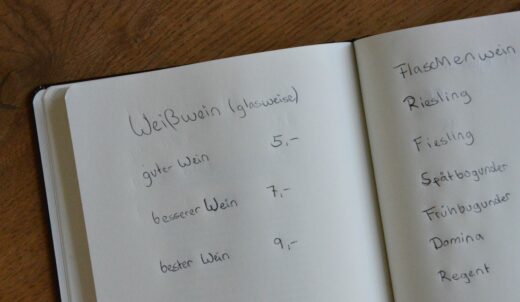 Weißwein (glasweise)
guter Wein 5,-
besserer Wein 7,-
bester Wein 9,-
Flaschenwein
Riesling
Fiesling
Spätbogunder
Frühbugunder
Domina
Regent